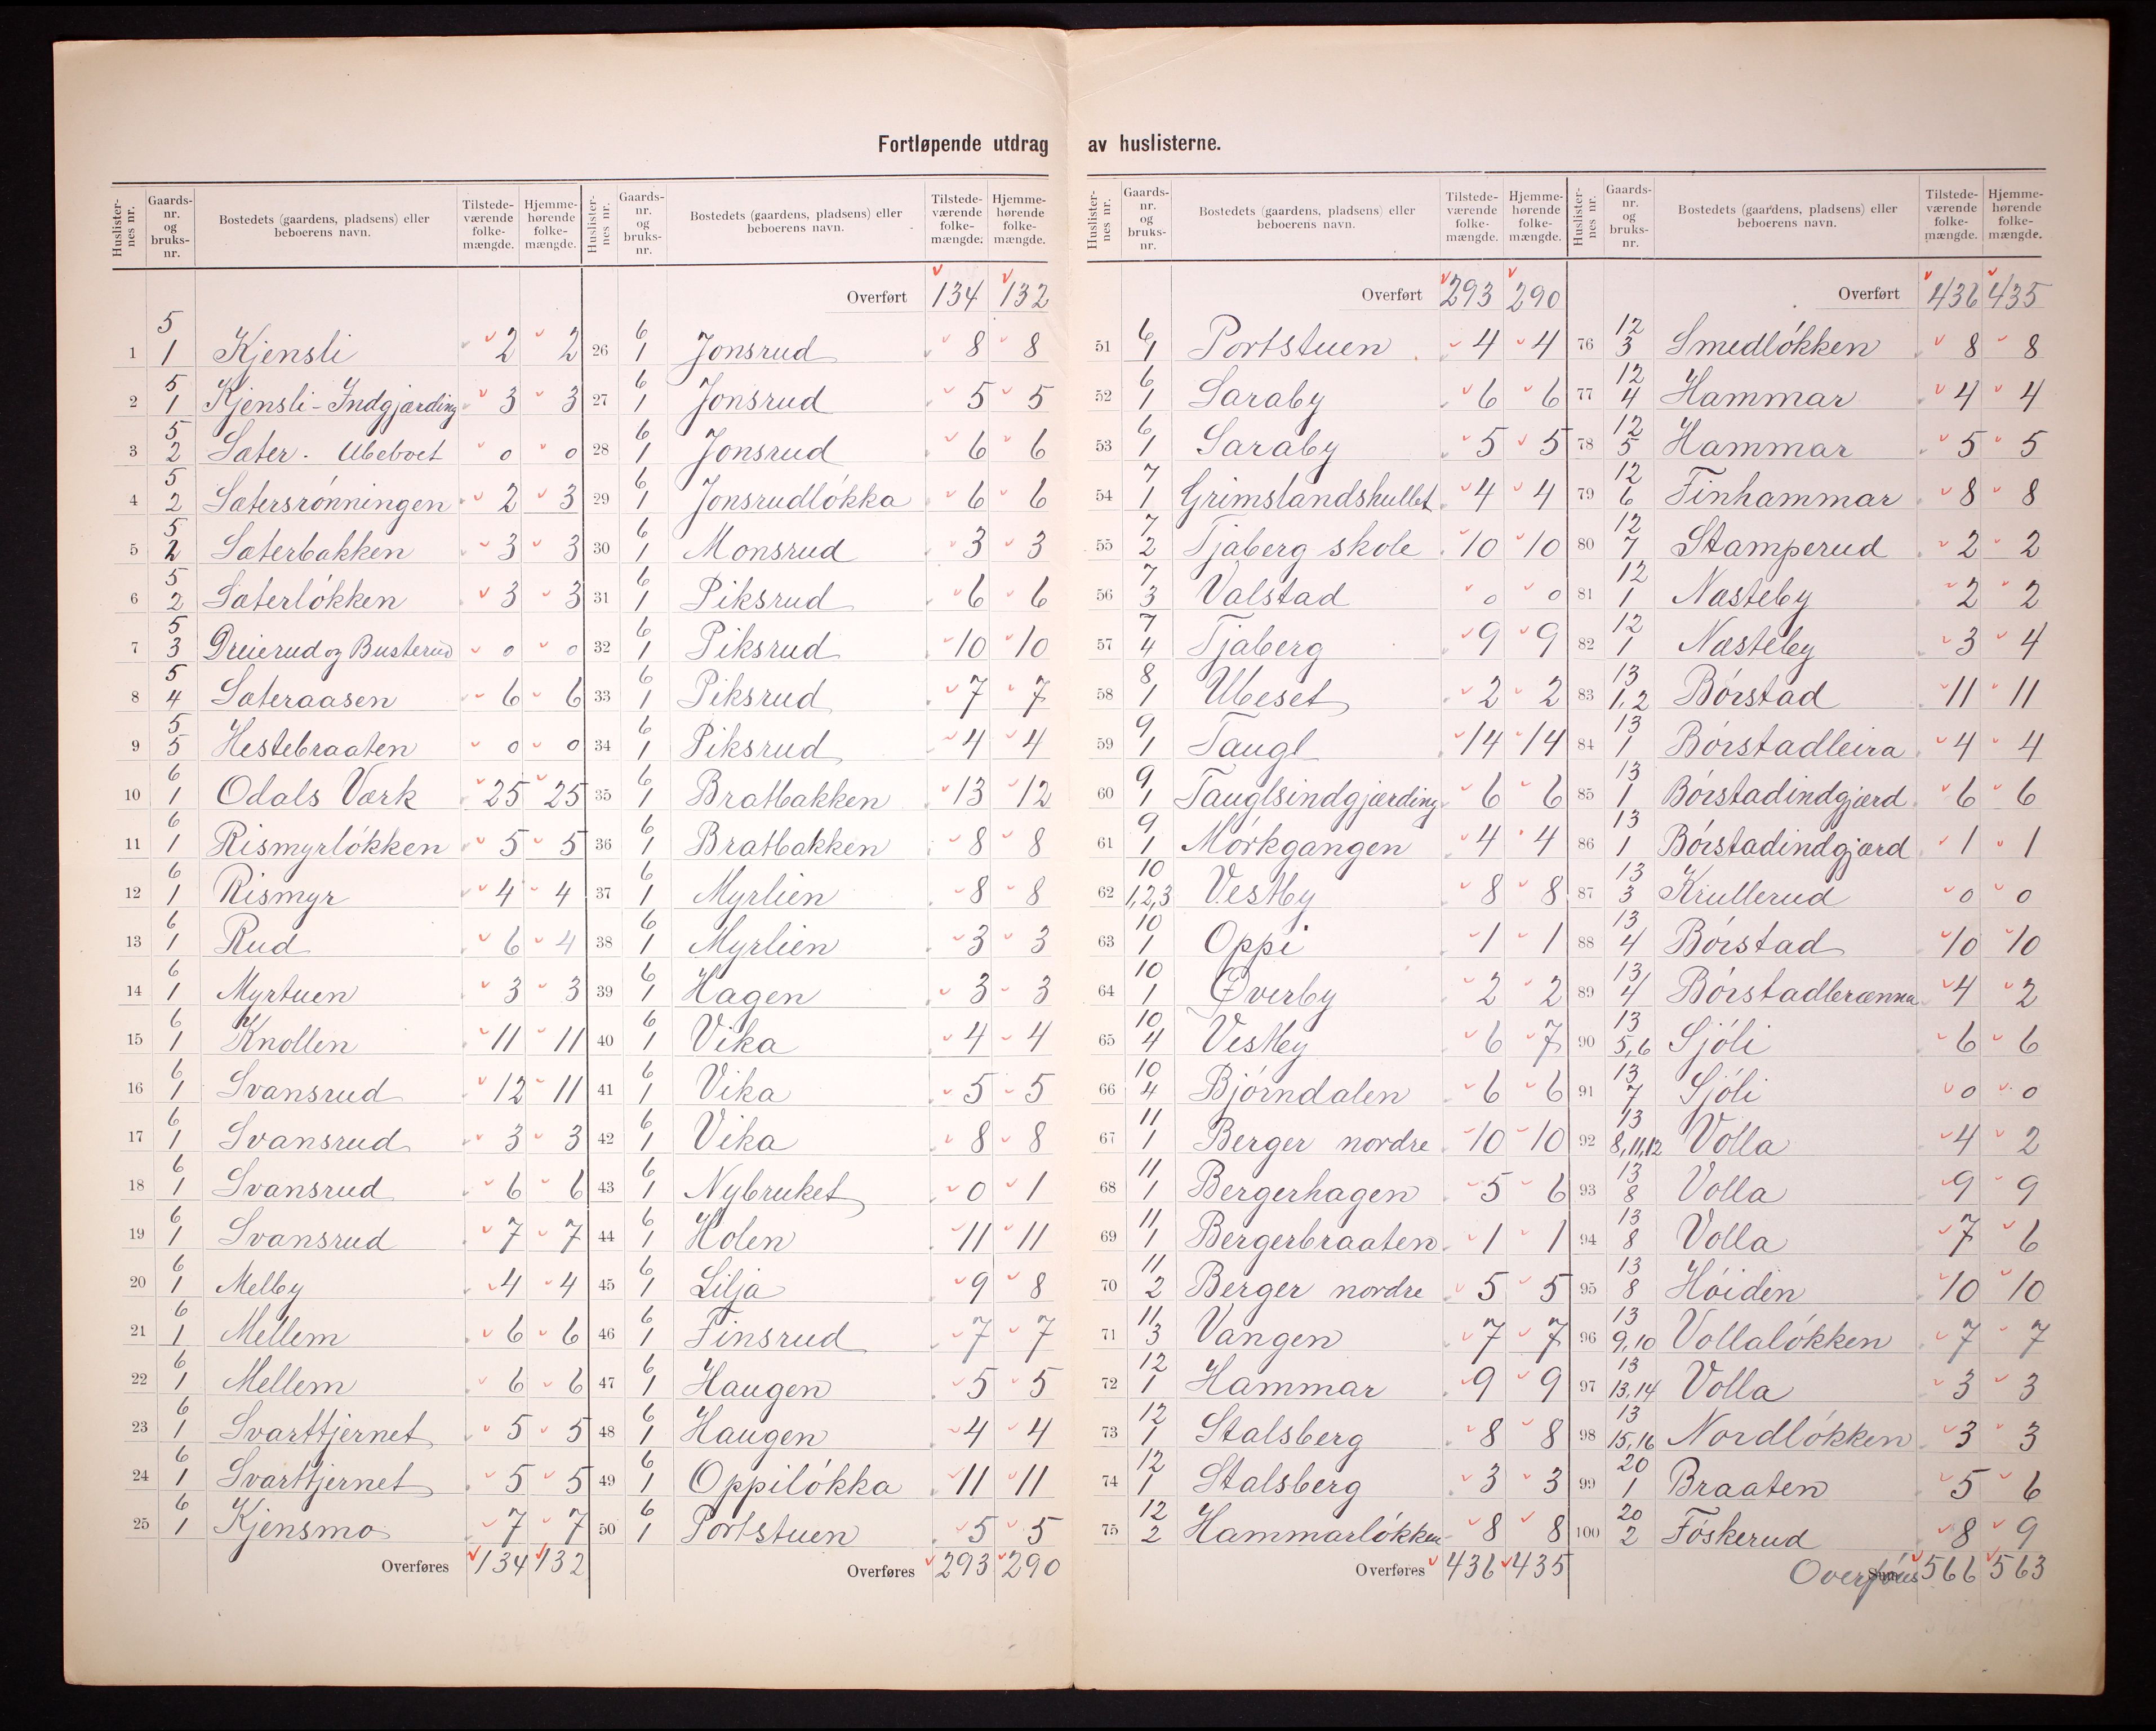 Fortløpende utdrag av huslisterne.
Huslisternes nr. | Gaards-nr. og bruks-nr. | Bostedets (gaardens, pladsens) eller beboerens navn. | Tilstedeværende folkemængde. | Hjemmehørende folkemængde.
1 5/1 Kjensli 2 2
2 5/1 Kjensli-Indgjærding 3 3
3 5/2 Sæter. Ubeboet 0 0
4 5/2 Sætersrønningen 2 3
5 5/2 Sæterbakken 3 3
6 5/2 Sæterløkken 3 3
7 5/3 Dreierud og Busterud 0 0
8 5/4 Sæteraasen 6 6
9 5/5 Hestebraaten 0 0
10 6/1 Odals Værk 25 25
11 6/1 Rismyrløkken 5 5
12 6/1 Rismyr 4 4
13 6/1 Rud 6 4
14 6/1 Myrtuen 3 3
15 6/1 Knollen 11 11
16 6/1 Svansrud 12 11
17 6/1 Svansrud 3 3
18 6/1 Svansrud 6 6
19 6/1 Svansrud 7 7
20 6/1 Melby 4 4
21 6/1 Mellem 6 6
22 6/1 Mellem 6 6
23 6/1 Svarttjernet 5 5
24 6/1 Svarttjernet 5 5
25 6/1 Kjensmo 7 7
Overføres 134 132
Huslisternes nr. | Gaards-nr. og bruks-nr. | Bostedets (gaardens, pladsens) eller beboerens navn. | Tilstedeværende folkemængde. | Hjemmehørende folkemængde.
Overført 134 132
26 6/1 Jonsrud 8 8
27 6/1 Jonsrud 5 5
28 6/1 Jonsrud 6 6
29 6/1 Jonsrudløkka 6 6
30 6/1 Monsrud 3 3
31 6/1 Piksrud 6 6
32 6/1 Piksrud 10 10
33 6/1 Piksrud 7 7
34 6/1 Piksrud 4 4
35 6/1 Bratbakken 13 12
36 6/1 Bratbakken 8 8
37 6/1 Myrlien 8 8
38 6/1 Myrlien 3 3
39 6/1 Hagen 3 3
40 6/1 Vika 4 4
41 6/1 Vika 5 5
42 6/1 Vika 8 8
43 6/1 Nybruket 0 1
44 6/1 Holen 11 11
45 6/1 Lilja 9 8
46 6/1 Finsrud 7 7
47 6/1 Haugen 5 5
48 6/1 Haugen 4 4
49 6/1 Oppiløkka 11 11
50 6/1 Portstuen 5 5
Overføres 293 290
Huslisternes nr. | Gaards-nr. og bruks-nr. | Bostedets (gaardens, pladsens) eller beboerens navn. | Tilstedeværende folkemængde. | Hjemmehørende folkemængde.
Overført 293 290
51 6/1 Portstuen 4 4
52 6/1 Saraby 6 6
53 6/1 Saraby 5 5
54 7/1 Grimslandshullet 4 4
55 7/2 Tjaberg skole 10 10
56 7/3 Valstad 0 0
57 7/4 Tjaberg 9 9
58 8/1 Ubeset 2 2
59 9/1 Taugl 14 14
60 9/1 Tauglsindgjærding 6 6
61 9/1 Mørkgangen 4 4
62 10/1,2,3 Vestby 8 8
63 10/1 Oppi 1 1
64 10/1 Øverby 2 2
65 10/4 Vestby 6 7
66 10/4 Bjørndalen 6 6
67 11/1 Berger nordre 10 10
68 11/1 Bergerhagen 5 6
69 11/1 Bergerbraaten 1 1
70 11/2 Berger nordre 5 5
71 11/3 Vangen 7 7
72 12/1 Hammar 9 9
73 12/1 Stalsberg 8 8
74 12/1 Stalsberg 3 3
75 12/2 Hammarløkken 8 8
Overføres 436 435
Huslisternes nr. | Gaards-nr. og bruks-nr. | Bostedets (gaardens, pladsens) eller beboerens navn. | Tilstedeværende folkemængde. | Hjemmehørende folkemængde.
Overført 436 435
76 12/3 Smedløkken 8 8
77 12/4 Hammar 4 4
78 12/5 Hammar 5 5
79 12/6 Finhammar 8 8
80 12/7 Stamperud 2 2
81 12/1 Næsteby 2 2
82 12/1 Næsteby 3 4
83 13/1,2 Børstad 11 11
84 13/1 Børstadleira 4 4
85 13/1 Børstadindgjærd 6 6
86 13/1 Børstadindgjærd 1 1
87 13/3 Krullerud 0 0
88 13/4 Børstad 10 10
89 13/4 Børstadlerænna 4 2
90 13/5,6 Sjøli 6 6
91 13/7 Sjøli 0 0
92 13/8,11,12 Volla 4 2
93 13/8 Volla 9 9
94 13/8 Volla 7 6
95 13/8 Høiden 10 10
96 13/9,10 Vollaløkken 7 7
97 13/13,14 Volla 3 3
98 13/15,16 Nordløkken 3 3
99 20/1 Braaten 5 6
100 20/2 Føskerud 8 9
Overføres 566 563